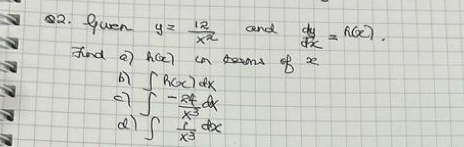 Q2. Given y = 12/x² and dy/dx = h(x).
Find a) h(x) in terms of x
b) ∫ h(x) dx
c) ∫ -24/x³ dx
d) ∫ 1/x³ dx